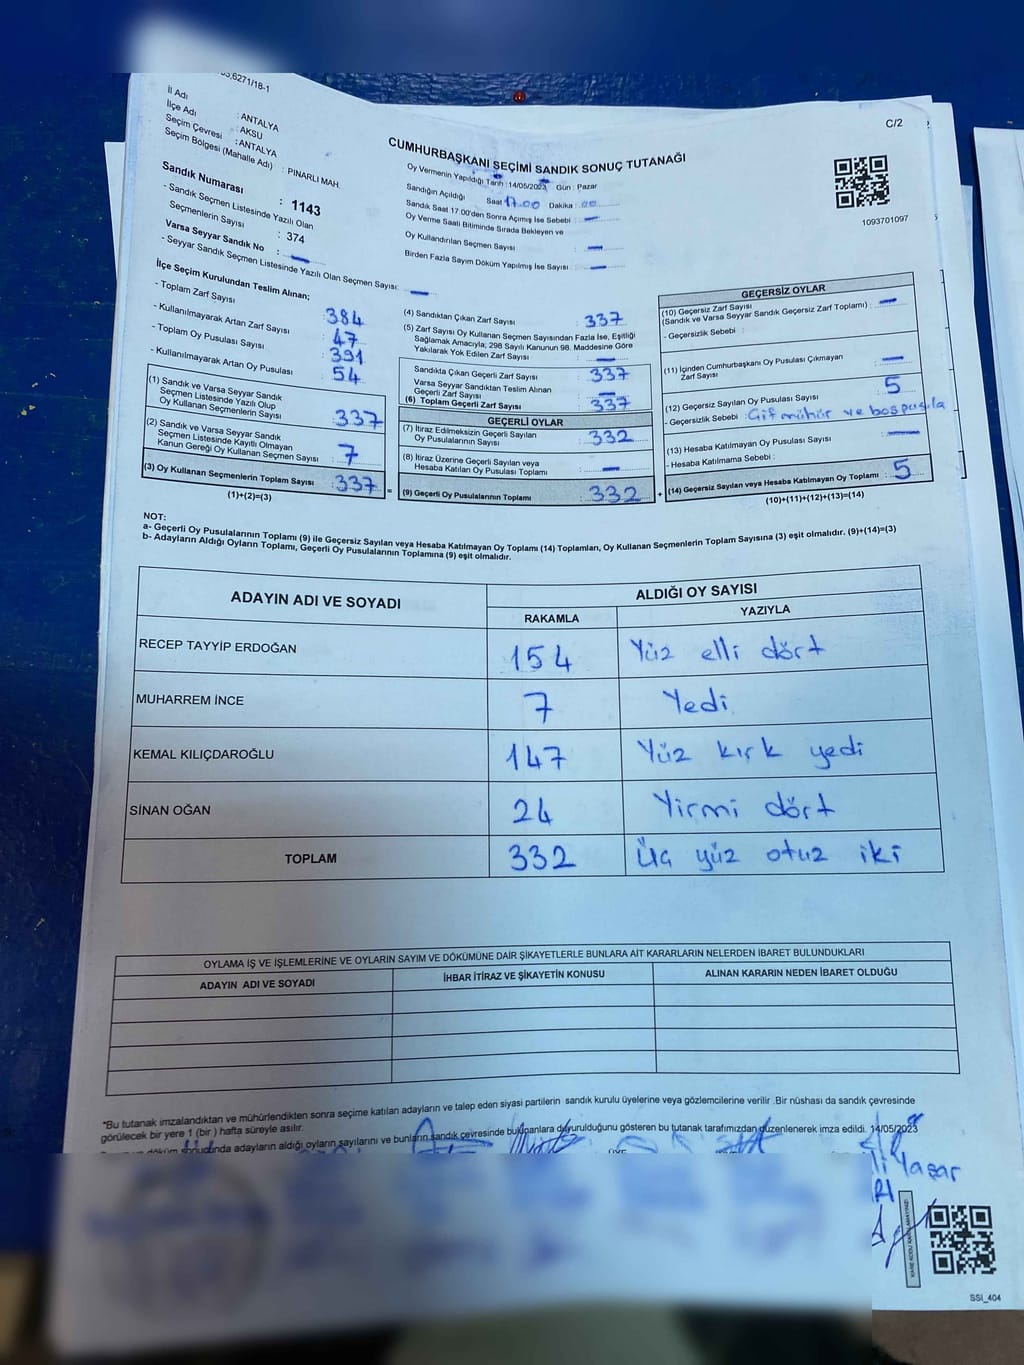 6271/18-1
C/2
İl Adı : ANTALYA
İlçe Adı : AKSU
Seçim Çevresi : ANTALYA
Seçim Bölgesi (Mahalle Adı) : PINARLI MAH.
Sandık Numarası : 1143
- Sandık Seçmen Listesinde Yazılı Olan
Seçmenlerin Sayısı : 374
Varsa Seyyar Sandık No : —
- Seyyar Sandık Seçmen Listesinde Yazılı Olan Seçmen Sayısı: —
CUMHURBAŞKANI SEÇİMİ SANDIK SONUÇ TUTANAĞI
Oy Vermenin Yapıldığı Tarih : 14/05/2023 Gün : Pazar
Sandığın Açıldığı Saat 17.00 Dakika : 00
Sandık Saat 17.00'den Sonra Açılmış İse Sebebi : —
Oy Verme Saati Bitiminde Sırada Bekleyen ve
Oy Kullandırılan Seçmen Sayısı —
Birden Fazla Sayım Döküm Yapılmış İse Sayısı : —
1093701097
İlçe Seçim Kurulundan Teslim Alınan;
- Toplam Zarf Sayısı : 384
- Kullanılmayarak Artan Zarf Sayısı : 47
- Toplam Oy Pusulası Sayısı : 391
- Kullanılmayarak Artan Oy Pusulası : 54
(1) Sandık ve Varsa Seyyar Sandık
Seçmen Listesinde Yazılı Olup
Oy Kullanan Seçmenlerin Sayısı : 337
(2) Sandık ve Varsa Seyyar Sandık
Seçmen Listesinde Kayıtlı Olmayan
Kanun Gereği Oy Kullanan Seçmen Sayısı : 7
(3) Oy Kullanan Seçmenlerin Toplam Sayısı : 337 =
(1)+(2)=(3)
(4) Sandıktan Çıkan Zarf Sayısı : 337
(5) Zarf Sayısı Oy Kullanan Seçmen Sayısından Fazla İse, Eşitliği
Sağlamak Amacıyla; 298 Sayılı Kanunun 98. Maddesine Göre
Yakılarak Yok Edilen Zarf Sayısı : —
Sandıkta Çıkan Geçerli Zarf Sayısı : 337
Varsa Seyyar Sandıktan Teslim Alınan
Geçerli Zarf Sayısı : —
(6) Toplam Geçerli Zarf Sayısı : 337
GEÇERLİ OYLAR
(7) İtiraz Edilmeksizin Geçerli Sayılan
Oy Pusulalarının Sayısı : 332
(8) İtiraz Üzerine Geçerli Sayılan veya
Hesaba Katılan Oy Pusulası Toplamı : —
(9) Geçerli Oy Pusulalarının Toplamı : 332 +
GEÇERSİZ OYLAR
(10) Geçersiz Zarf Sayısı
(Sandık ve Varsa Seyyar Sandık Geçersiz Zarf Toplamı) : —
- Geçersizlik Sebebi :
(11) İçinden Cumhurbaşkanı Oy Pusulası Çıkmayan
Zarf Sayısı : —
(12) Geçersiz Sayılan Oy Pusulası Sayısı : 5
- Geçersizlik Sebebi : Çift mühür ve boş pusula
(13) Hesaba Katılmayan Oy Pusulası Sayısı : —
- Hesaba Katılmama Sebebi :
(14) Geçersiz Sayılan veya Hesaba Katılmayan Oy Toplamı : 5
(10)+(11)+(12)+(13)=(14)
NOT:
a- Geçerli Oy Pusulalarının Toplamı (9) ile Geçersiz Sayılan veya Hesaba Katılmayan Oy Toplamı (14) Toplamları, Oy Kullanan Seçmenlerin Toplam Sayısına (3) eşit olmalıdır. (9)+(14)=(3)
b- Adayların Aldığı Oyların Toplamı, Geçerli Oy Pusulalarının Toplamına (9) eşit olmalıdır.
ADAYIN ADI VE SOYADI ALDIĞI OY SAYISI
RAKAMLA YAZIYLA
RECEP TAYYİP ERDOĞAN 154 Yüz elli dört
MUHARREM İNCE 7 Yedi
KEMAL KILIÇDAROĞLU 147 Yüz kırk yedi
SİNAN OĞAN 24 Yirmi dört
TOPLAM 332 Üç yüz otuz iki
OYLAMA İŞ VE İŞLEMLERİNE VE OYLARIN SAYIM VE DÖKÜMÜNE DAİR ŞİKAYETLERLE BUNLARA AİT KARARLARIN NELERDEN İBARET BULUNDUKLARI
ADAYIN ADI VE SOYADI İHBAR İTİRAZ VE ŞİKAYETİN KONUSU ALINAN KARARIN NEDEN İBARET OLDUĞU
*Bu tutanak imzalandıktan ve mühürlendikten sonra seçime katılan adayların ve talep eden siyasi partilerin sandık kurulu üyelerine veya gözlemcilerine verilir .Bir nüshası da sandık çevresinde
görülecek bir yere 1 (bir ) hafta süreyle asılır.
döküm sonucunda adayların aldığı oyların sayılarını ve bunların sandık çevresinde bulunanlara duyurulduğunu gösteren bu tutanak tarafımızdan düzenlenerek imza edildi. 14/05/2023
Yaşar
SSI_404